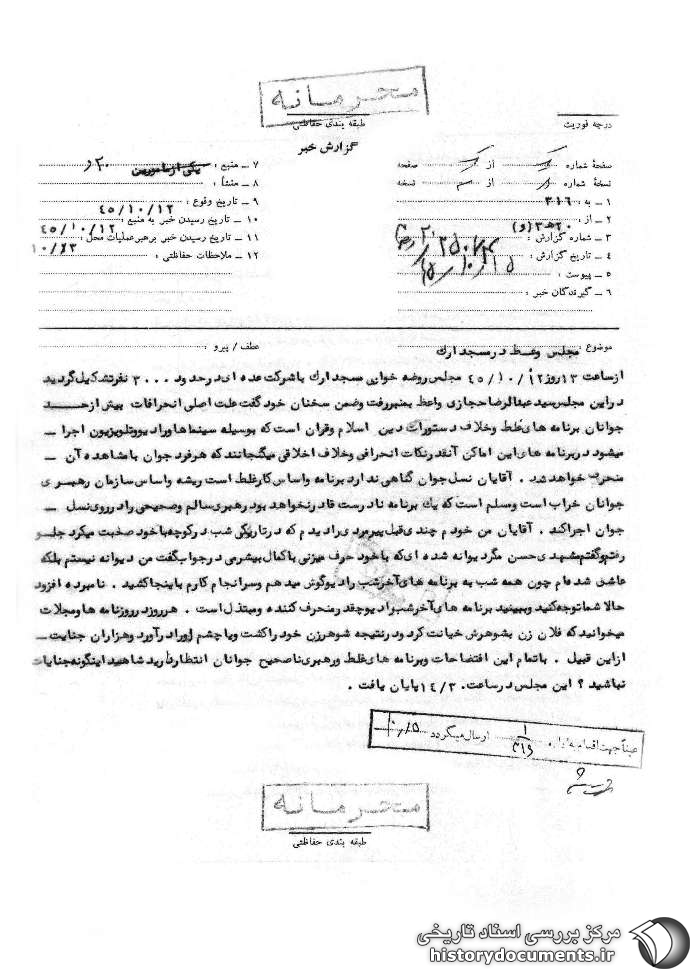 محرمانه
طبقه بندی حفاظتی
درجه فوریت
گزارش خبر
صفحهٔ شماره از صفحه
نسخهٔ شماره از نسخه
۱ ـ به : ۳۱۶
۲ ـ از : ۲۰ هـ ۳ (و)
۳ ـ شماره گزارش :
۴ ـ تاریخ گزارش :
۵ ـ پیوست :
۶ ـ گیرندگان خبر :
۷ ـ منبع : یکی از مامورین ۲۰ و
۸ ـ منشأ :
۹ ـ تاریخ وقوع : ۴۵/۱۰/۱۲
۱۰ ـ تاریخ رسیدن خبر به منبع : ۴۵/۱۰/۱۲
۱۱ ـ تاریخ رسیدن خبر برهبر عملیات محل :
۱۲ ـ ملاحظات حفاظتی :
موضوع : مجلس وعظ در مسجد ارك
عطف / پیرو :
از ساعت ۱۳ روز ۴۵/۱۰/۱۲ مجلس روضه خوانی مسجد ارك با شرکت عده ای در حدود ۳۰۰۰ نفر تشکیل گردید
در این مجلس سید عبدالرضا حجازی واعظ بمنبر رفت و ضمن سخنان خود گفت علت اصلی انحرافات بیش از حد
جوانان برنامه های غلط و خلاف دستورات دین اسلام و قران است که بوسیله سینماها و رادیو و تلویزیون اجرا ـ
میشود در برنامه های این اماکن آنقدر نکات انحرافی و خلاف اخلاقی میگنجانند که هر فرد جوان با مشاهده آن ـ
منحرف خواهد شد . آقایان نسل جوان گناهی ندارد برنامه و اساس کار غلط است ریشه و اساس سازمان رهبری
جوانان خراب است و مسلم است که یك برنامه نادرست قادر نخواهد بود رهبری سالم و صحیحی را در روی نسل ـ
جوان اجرا کند . آقایان من خودم چندی قبل پیرمردی را دیدم که در تاریکی شب در کوچه با خود صحبت میکرد جلو
رفتم و گفتم مشهدی حسن مگر دیوانه شده ای که با خود حرف میزنی با کمال بیشرمی در جواب گفت من دیوانه نیستم بلکه
عاشق شده ام چون همه شب به برنامه های آخر شب رادیو گوش میدهم و سرانجام کارم باینجا کشید . نامبرده افزود
حالا شما توجه کنید و ببینید برنامه های آخر شب رادیو چقدر منحرف کننده و مبتذل است . هر روز در روزنامه ها و مجلات
میخوانید که فلان زن بشوهرش خیانت کرد و در نتیجه شوهر زن خود را کشت و یا چشم او را درآورد و هزاران جنایت ـ
از این قبیل . با تمام این افتضاحات و برنامه های غلط و رهبری ناصحیح جوانان انتظار دارید شاهد اینگونه جنایات
نباشید ؟ این مجلس در ساعت ۱۴/۳۰ پایان یافت .
عیناً جهت اقدام به اداره ارسال میگردد
محرمانه
طبقه بندی حفاظتی
مرکز بررسی اسناد تاریخی
historydocuments.ir